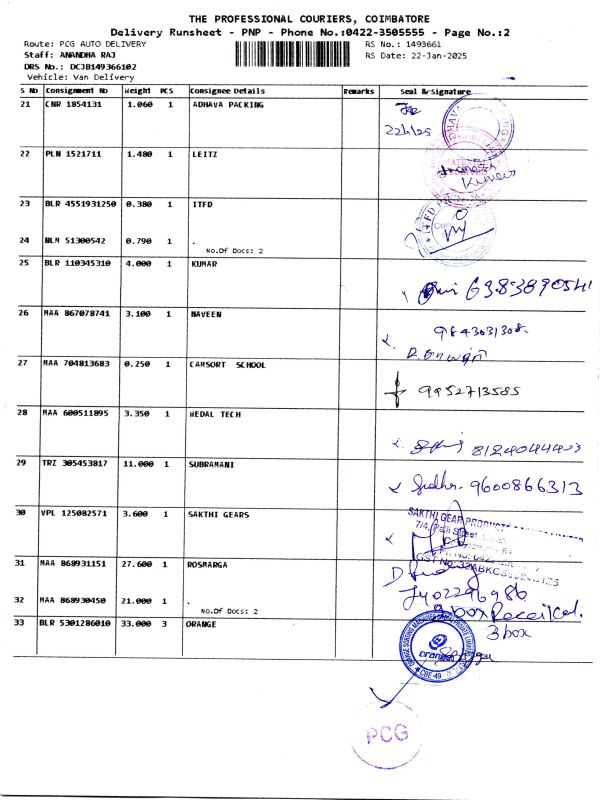 THE PROFESSIONAL COURIERS, COIMBATORE
Delivery Runsheet - PNP - Phone No.:0422-3505555 - Page No.:2
Route: PCG AUTO DELIVERY RS No.: 1493661
Staff: ANANDHA RAJ RS Date: 22-Jan-2025
DRS No.: DCJB149366102
Vehicle: Van Delivery
S No Consignment No Weight PCS Consignee Details Remarks Seal & Signature
21 CNR 1854131 1.060 1 ADHAVA PACKING
22/1/25
22 PLN 1521711 1.480 1 LEITZ
Kumar
23 BLR 4551931250 0.380 1 ITFD
ITFD
24 NLM 51300542 0.790 1 .
No.Of Docs: 2
25 BLR 110345310 4.000 1 KUMAR
26 MAA 867078741 3.100 1 NAVEEN
9843031308
27 MAA 704813683 0.250 1 CAMSORT SCHOOL
9952713585
28 MAA 600511895 3.350 1 WEDAL TECH
29 TRZ 305453817 11.000 1 SUBRAMANI
9600866313
30 VPL 125082571 3.600 1 SAKTHI GEARS
SAKTHI GEAR PRODUCTS
31 MAA 868931151 27.600 1 ROSMARGA
32 MAA 868930450 21.000 1 .
No.Of Docs: 2
2 box Received.
33 BLR 5301286010 33.000 3 ORANGE
3 box
orange
CBE-49
PCG